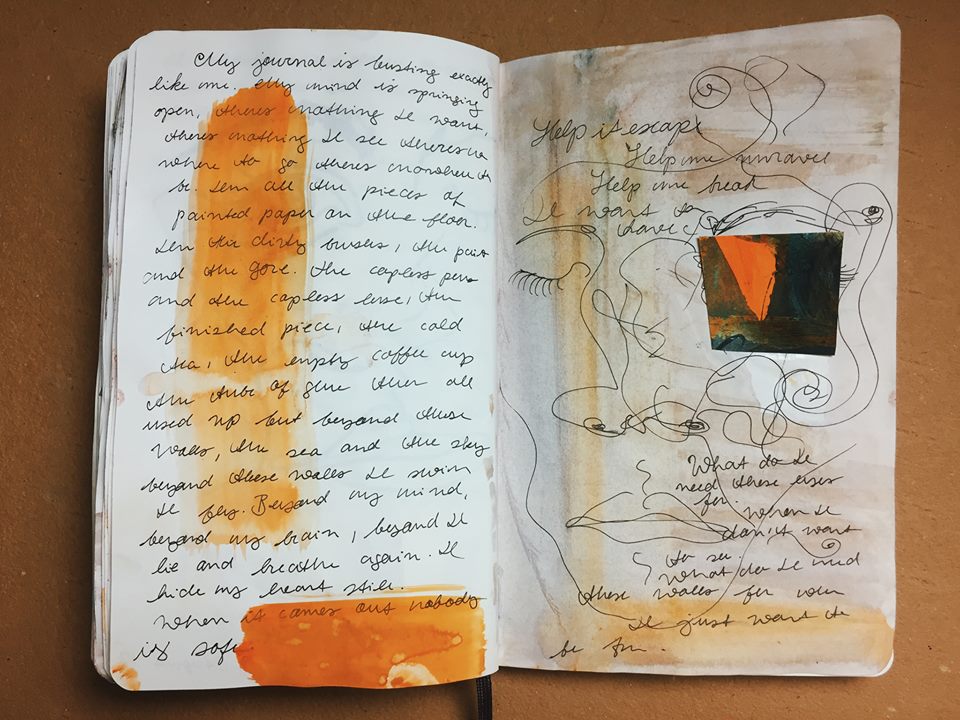 My journal is busting exactly
like me. My mind is springing
open, theres nothing I want,
theres nothing I see theres no
where to go theres nowhere to
be. Im all the pieces of
painted paper on the floor.
Im the dirty brushes, the paint
and the gore. the capless pens
and the capless lense, the
finished piece, the cold
tea, the empty coffee cup
the tube of glue then all
used up but beyond these
walls, the sea and the sky
beyond these walls I swim
I fly. Beyond my mind,
beyond my brain, beyond I
lie and breathe again. I
hide my heart still.
When it comes out nobody
is safe.
Help it escape
Help me unravel
Help me bread
I want to
What do I
need these eyes
for.
When I
don't want
to see.
What do I need
these walls for when
I just want to
be